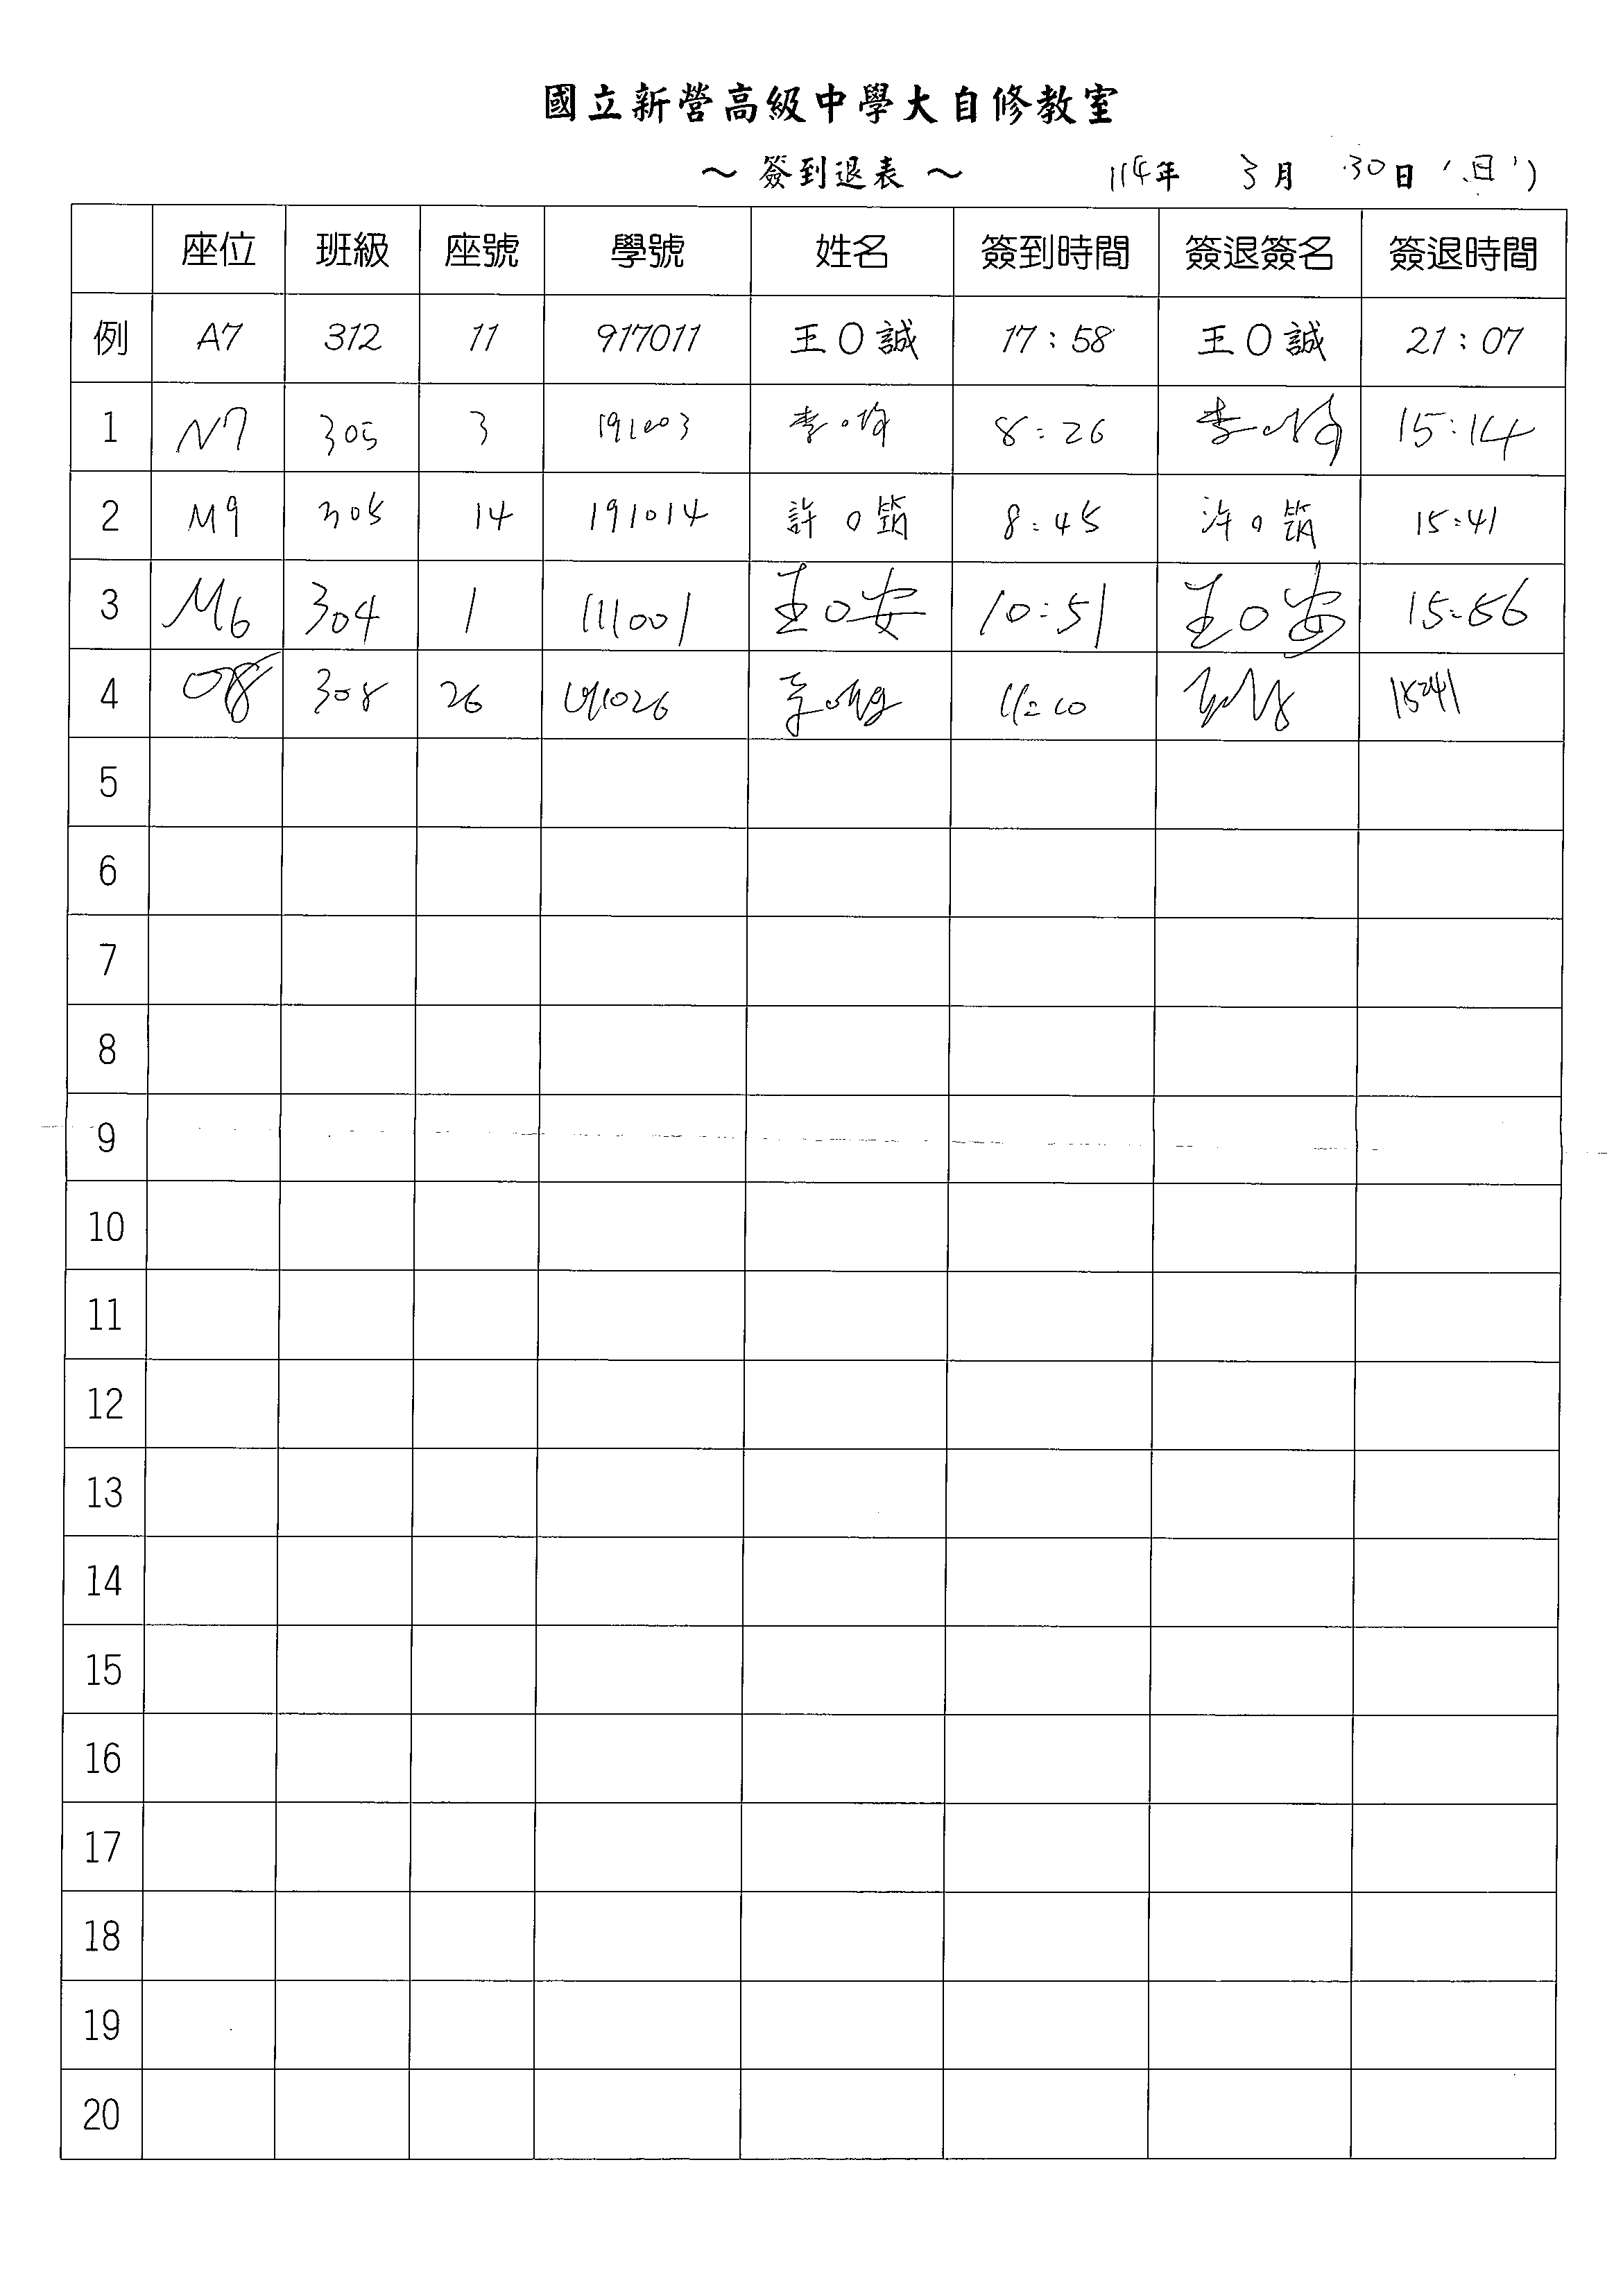 國立新營高級中學大自修教室
～ 簽到退表 ～ 114年 3月 30日 (日)
座位 班級 座號 學號 姓名 簽到時間 簽退簽名 簽退時間
例 A7 312 11 917011 王〇誠 17:58 王〇誠 21:07
1 N7 305 3 191003 李〇 8:26 李〇 15:14
2 M9 305 14 191014 許〇筑 8:45 許〇筑 15:41
3 M6 304 1 111001 王〇安 10:51 王〇安 15:56
4 308 26 11:10 15:41
5
6
7
8
9
10
11
12
13
14
15
16
17
18
19
20